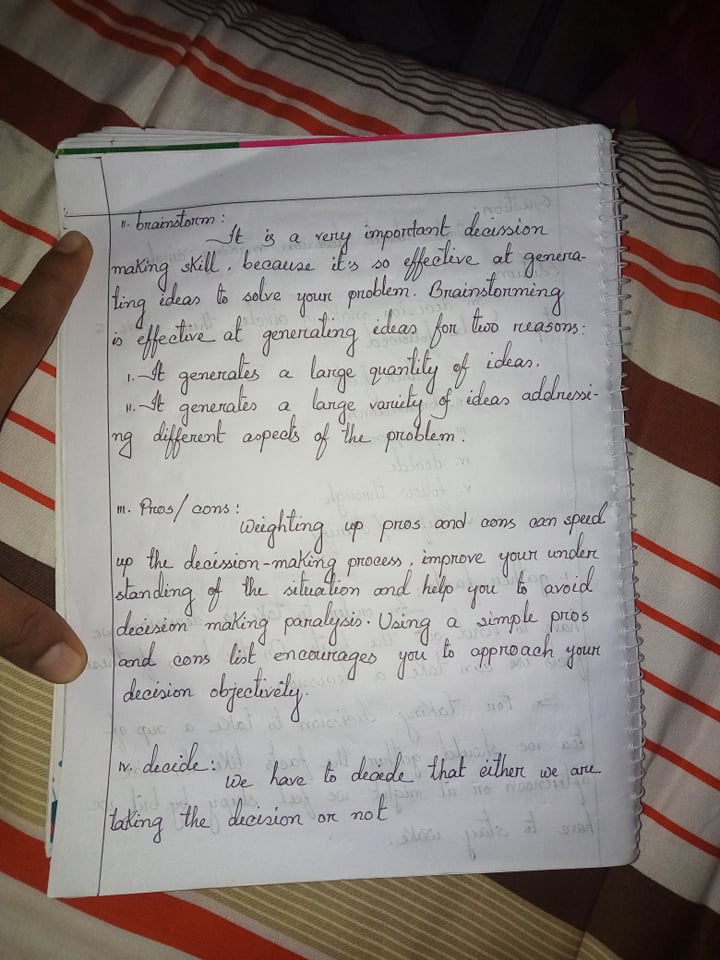 ii. brainstorm:
It is a very important decission
making skill, because it's so effective at genera-
ting ideas to solve your problem. Brainstorming
is effective at generating ideas for two reasons:
i. It generates a large quantity of ideas.
ii. It generates a large variety of ideas addressi-
ng different aspects of the problem.
iii. Pros/cons:
Weighting up pros and cons can speed
up the decission-making process, improve your under
standing of the situation and help you to avoid
decision making paralysis. Using a simple pros
and cons list encourages you to approach your
decision objectively.
iv. decide:
We have to decade that either we are
taking the decision or not